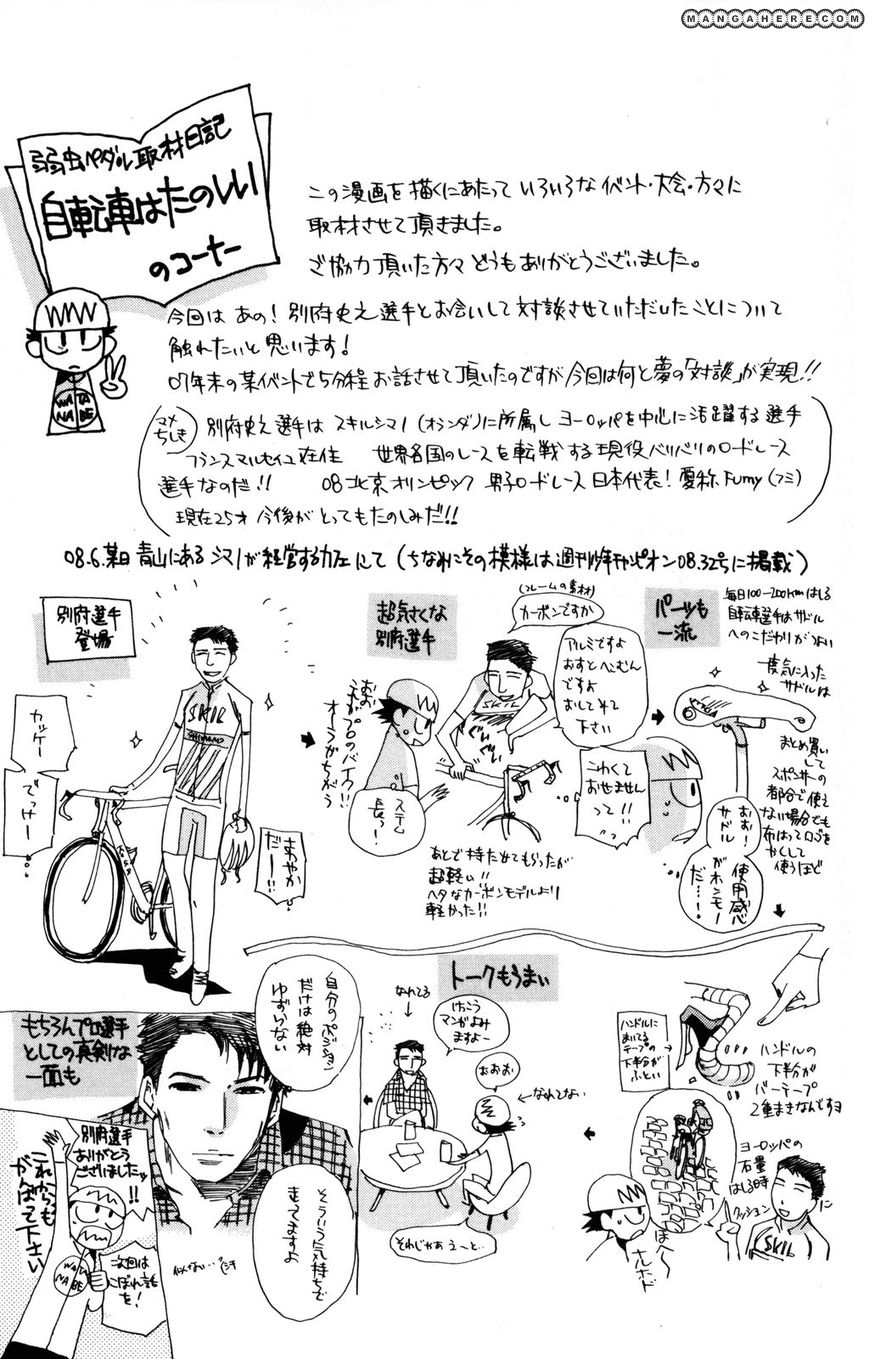 MANGAHERE.COM
弱虫ペダル取材日記
自転車はたのしい
のコーナー
この漫画を描くにあたって いろいろな イベント・大会・方々に
取材させて頂きました。
ご協力頂いた方々 どうもありがとうございました。
今回は あの！別府史之選手とお会いして 対談させていただいたことについて
触れたいと思います！
07年末の某イベントで5分程 お話させて頂いたのですが今回は何と夢の「対談」が実現!!
マメ
ちしき
別府史之選手は スキルシマノ（オランダ）に所属し ヨーロッパを中心に活躍する選手
フランスマルセイユ在住 世界各国のレースを転戦する現役バリバリのロードレース
選手なのだ!! 08北京オリンピック 男子ロードレース日本代表！愛称Fumy（フミ）
現在25才 今後がとってもたのしみだ!!
08.6.某日 青山にある シマノが経営するカフェにて（ちなみにその模様は週刊少年チャンピオン08.32号に掲載）
別府選手
登場
カッケー
でっけー…
SKIL
SHIMANO
さわやか
だー!!…
超気さくな
別府選手
（フレームの素材）
カーボンですか
アルミですよ
おすとへこむん
ですよ
おしてみて
下さい
SKIL
プロのバイク!!
オーラがちがう
ステム
長っ！
こわくて
おせません
って!!
あとで持たせてもらったが
超軽い!!
ヘタなカーボンモデルより
軽かった!!
パーツも
一流
毎日100-200kmはしる
自転車選手はサドル
へのこだわりがつよい
一度気に入った
サドルは
まとめ買い
して
スポンサーの
都合で使え
ない場合でも
布はってロゴを
かくして
使うほど
おお！
サドル
使用感
がホンモノ
だ……！
ハンドルに
まいてる
テープの
下半分が
ふとい
ハンドルの
下半分が
バーテープ
2重まきなんですヨ
ヨーロッパの
石畳
はしる時
クッション
に
SKIL
ほへ〜
ナルホド
トークもうまい
なれてる
けっこう
マンガよみ
ますよー
おおお
なれてない
それじゃあ え〜と…
もちろんプロ選手
としての真剣な
一面も
自分のポジション
だけは絶対
ゆずらない
そういう気持ちで
走ってますよ
似てない…
別府選手
ありがとう
ございましたッ!!
これからも
がんばって下さい
次回は
こぼれ話
を！
WATA
NABE